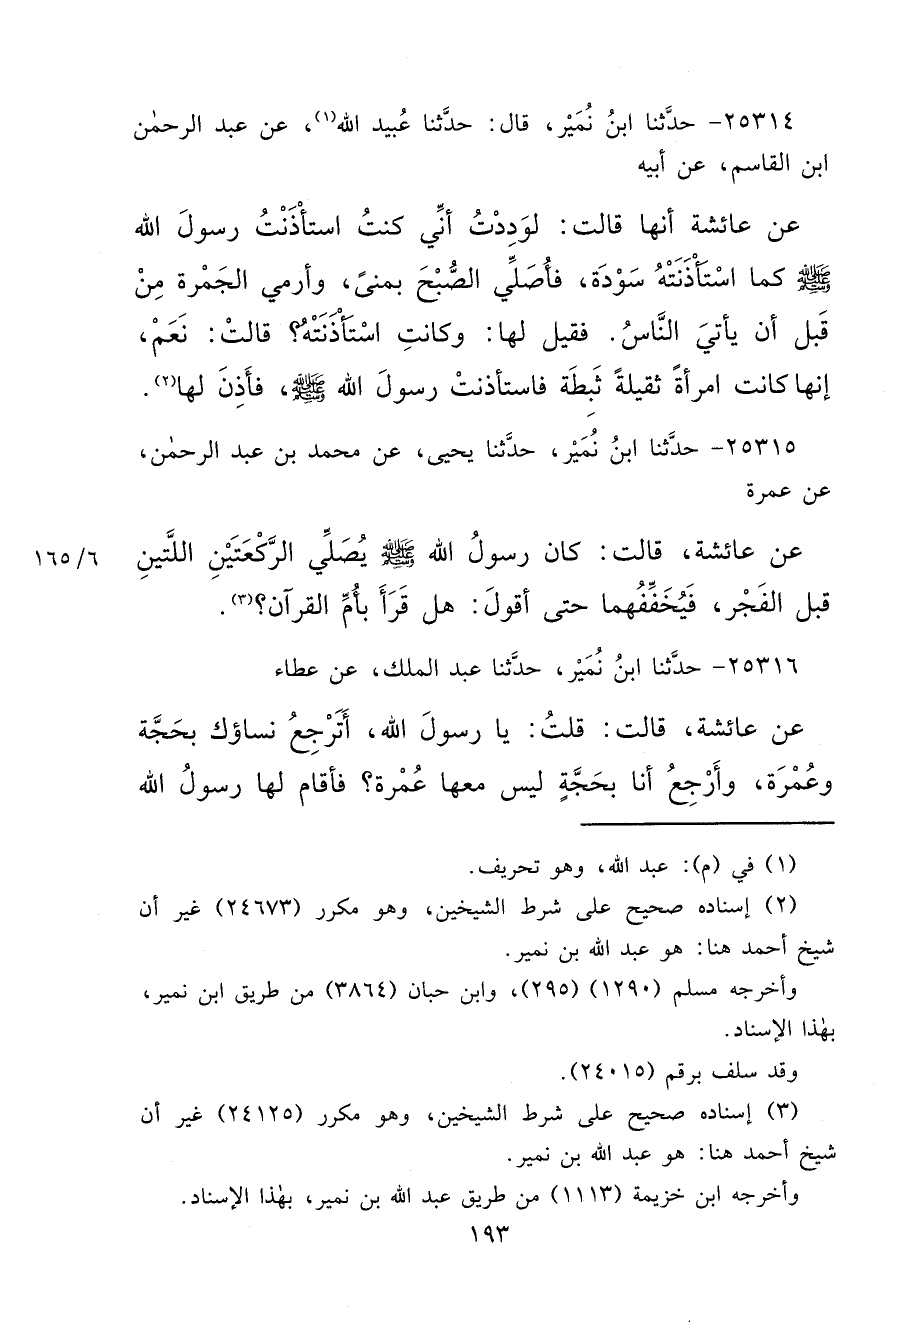 ٢٥٣١٤- حدَّثنا ابنُ نُمَيْر، قال: حدَّثنا عُبيد الله(١)، عن عبد الرحمٰن
ابن القاسم، عن أبيه
عن عائشة أنها قالت: لوَدِدْتُ أنِّي كنتُ استأْذَنْتُ رسولَ الله
ﷺ كما اسْتَأْذَنَتْهُ سَوْدَة، فأُصَلِّي الصُّبْحَ بمنىً، وأرمي الجَمْرة مِنْ
قَبل أن يأتيَ النَّاسُ. فقيل لها: وكانتِ اسْتَأْذَنَتْهُ؟ قالتْ: نَعَمْ،
إنها كانت امرأةً ثقيلةً ثَبِطَة فاستأذنتْ رسولَ الله ﷺ، فأَذِنَ لها(٢).
٢٥٣١٥- حدَّثنا ابنُ نُمَيْر، حدَّثنا يحيى، عن محمد بن عبد الرحمٰن،
عن عمرة
عن عائشة، قالت: كان رسولُ الله ﷺ يُصَلِّي الرَّكْعَتَيْنِ اللتَّينِ ٦/ ١٦٥
قبل الفَجْر، فَيُخَفِّفُهما حتى أقولَ: هل قَرَأَ بأُمِّ القرآن؟(٣).
٢٥٣١٦- حدَّثنا ابنُ نُمَيْر، حدَّثنا عبد الملك، عن عطاء
عن عائشة، قالت: قلتُ: يا رسولَ الله، أَتَرْجِعُ نساؤك بحَجَّة
وعُمْرَة، وأَرْجِعُ أنا بحَجَّةٍ ليس معها عُمْرة؟ فأقام لها رسولُ الله
(١) في (م): عبد الله، وهو تحريف.
(٢) إسناده صحيح على شرط الشيخين، وهو مكرر (٢٤٦٧٣) غير أن
شيخ أحمد هنا: هو عبد الله بن نمير.
وأخرجه مسلم (١٢٩٠) (٢٩٥)، وابن حبان (٣٨٦٤) من طريق ابن نمير،
بهٰذا الإسناد.
وقد سلف برقم (٢٤٠١٥).
(٣) إسناده صحيح على شرط الشيخين، وهو مكرر (٢٤١٢٥) غير أن
شيخ أحمد هنا: هو عبد الله بن نمير.
وأخرجه ابن خزيمة (١١١٣) من طريق عبد الله بن نمير، بهٰذا الإسناد.
١٩٣